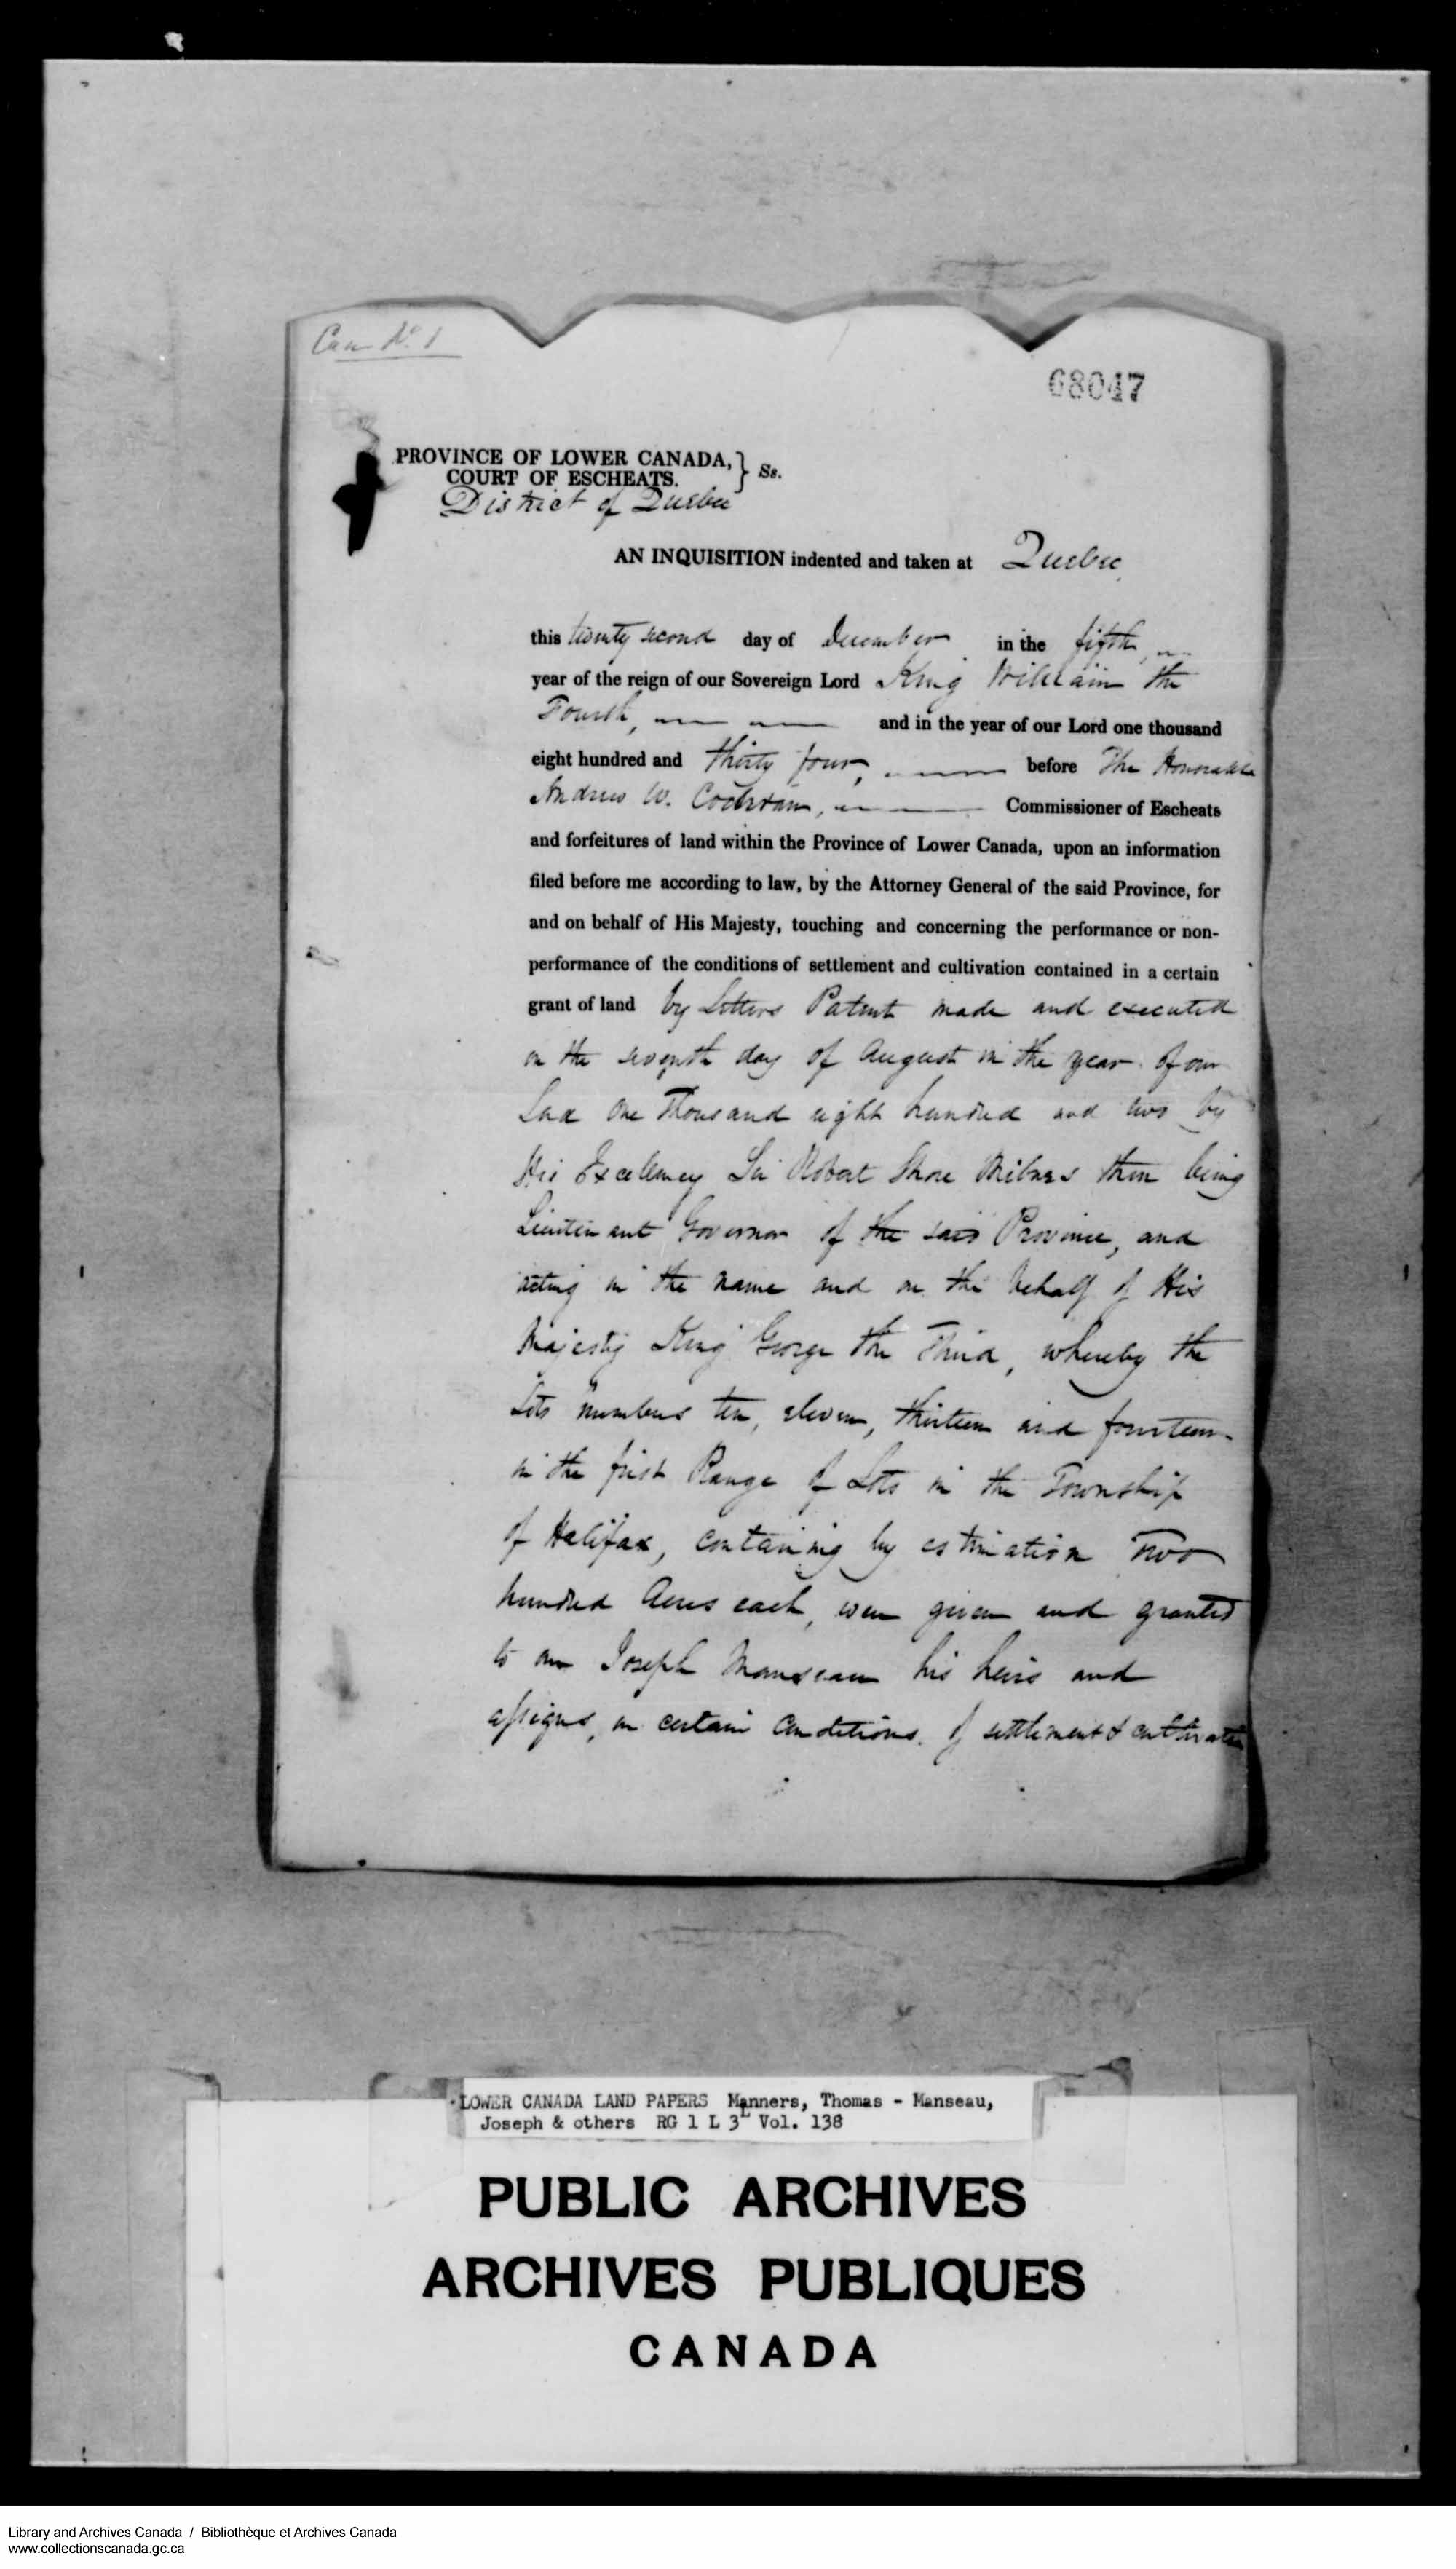 Case No. 1
68047
PROVINCE OF LOWER CANADA, } Ss.
COURT OF ESCHEATS.
District of Quebec
AN INQUISITION indented and taken at Quebec
this twenty second day of December in the fifth
year of the reign of our Sovereign Lord King William the
Fourth, and in the year of our Lord one thousand
eight hundred and thirty four, before The Honorable
Andrew W. Cochran, Commissioner of Escheats
and forfeitures of land within the Province of Lower Canada, upon an information
filed before me according to law, by the Attorney General of the said Province, for
and on behalf of His Majesty, touching and concerning the performance or non-
performance of the conditions of settlement and cultivation contained in a certain
grant of land by Letters Patent made and executed
on the seventh day of August in the year of our
Lord One Thousand eight hundred and two by
His Excellency Sir Robert Shore Milnes then being
Lieutenant Governor of the said Province, and
acting in the name and on the behalf of His
Majesty King George the Third, whereby the
Lots numbers ten, eleven, thirteen and fourteen
in the first Range of Lots in the Township
of Halifax, containing by estimation Two
hundred Acres each, were given and granted
to one Joseph Manseau his heirs and
assigns, on certain Conditions of settlement & cultivation
LOWER CANADA LAND PAPERS Manners, Thomas - Manseau,
Joseph & others RG 1 L 3L Vol. 138
PUBLIC ARCHIVES
ARCHIVES PUBLIQUES
CANADA
Library and Archives Canada / Bibliothèque et Archives Canada
www.collectionscanada.gc.ca